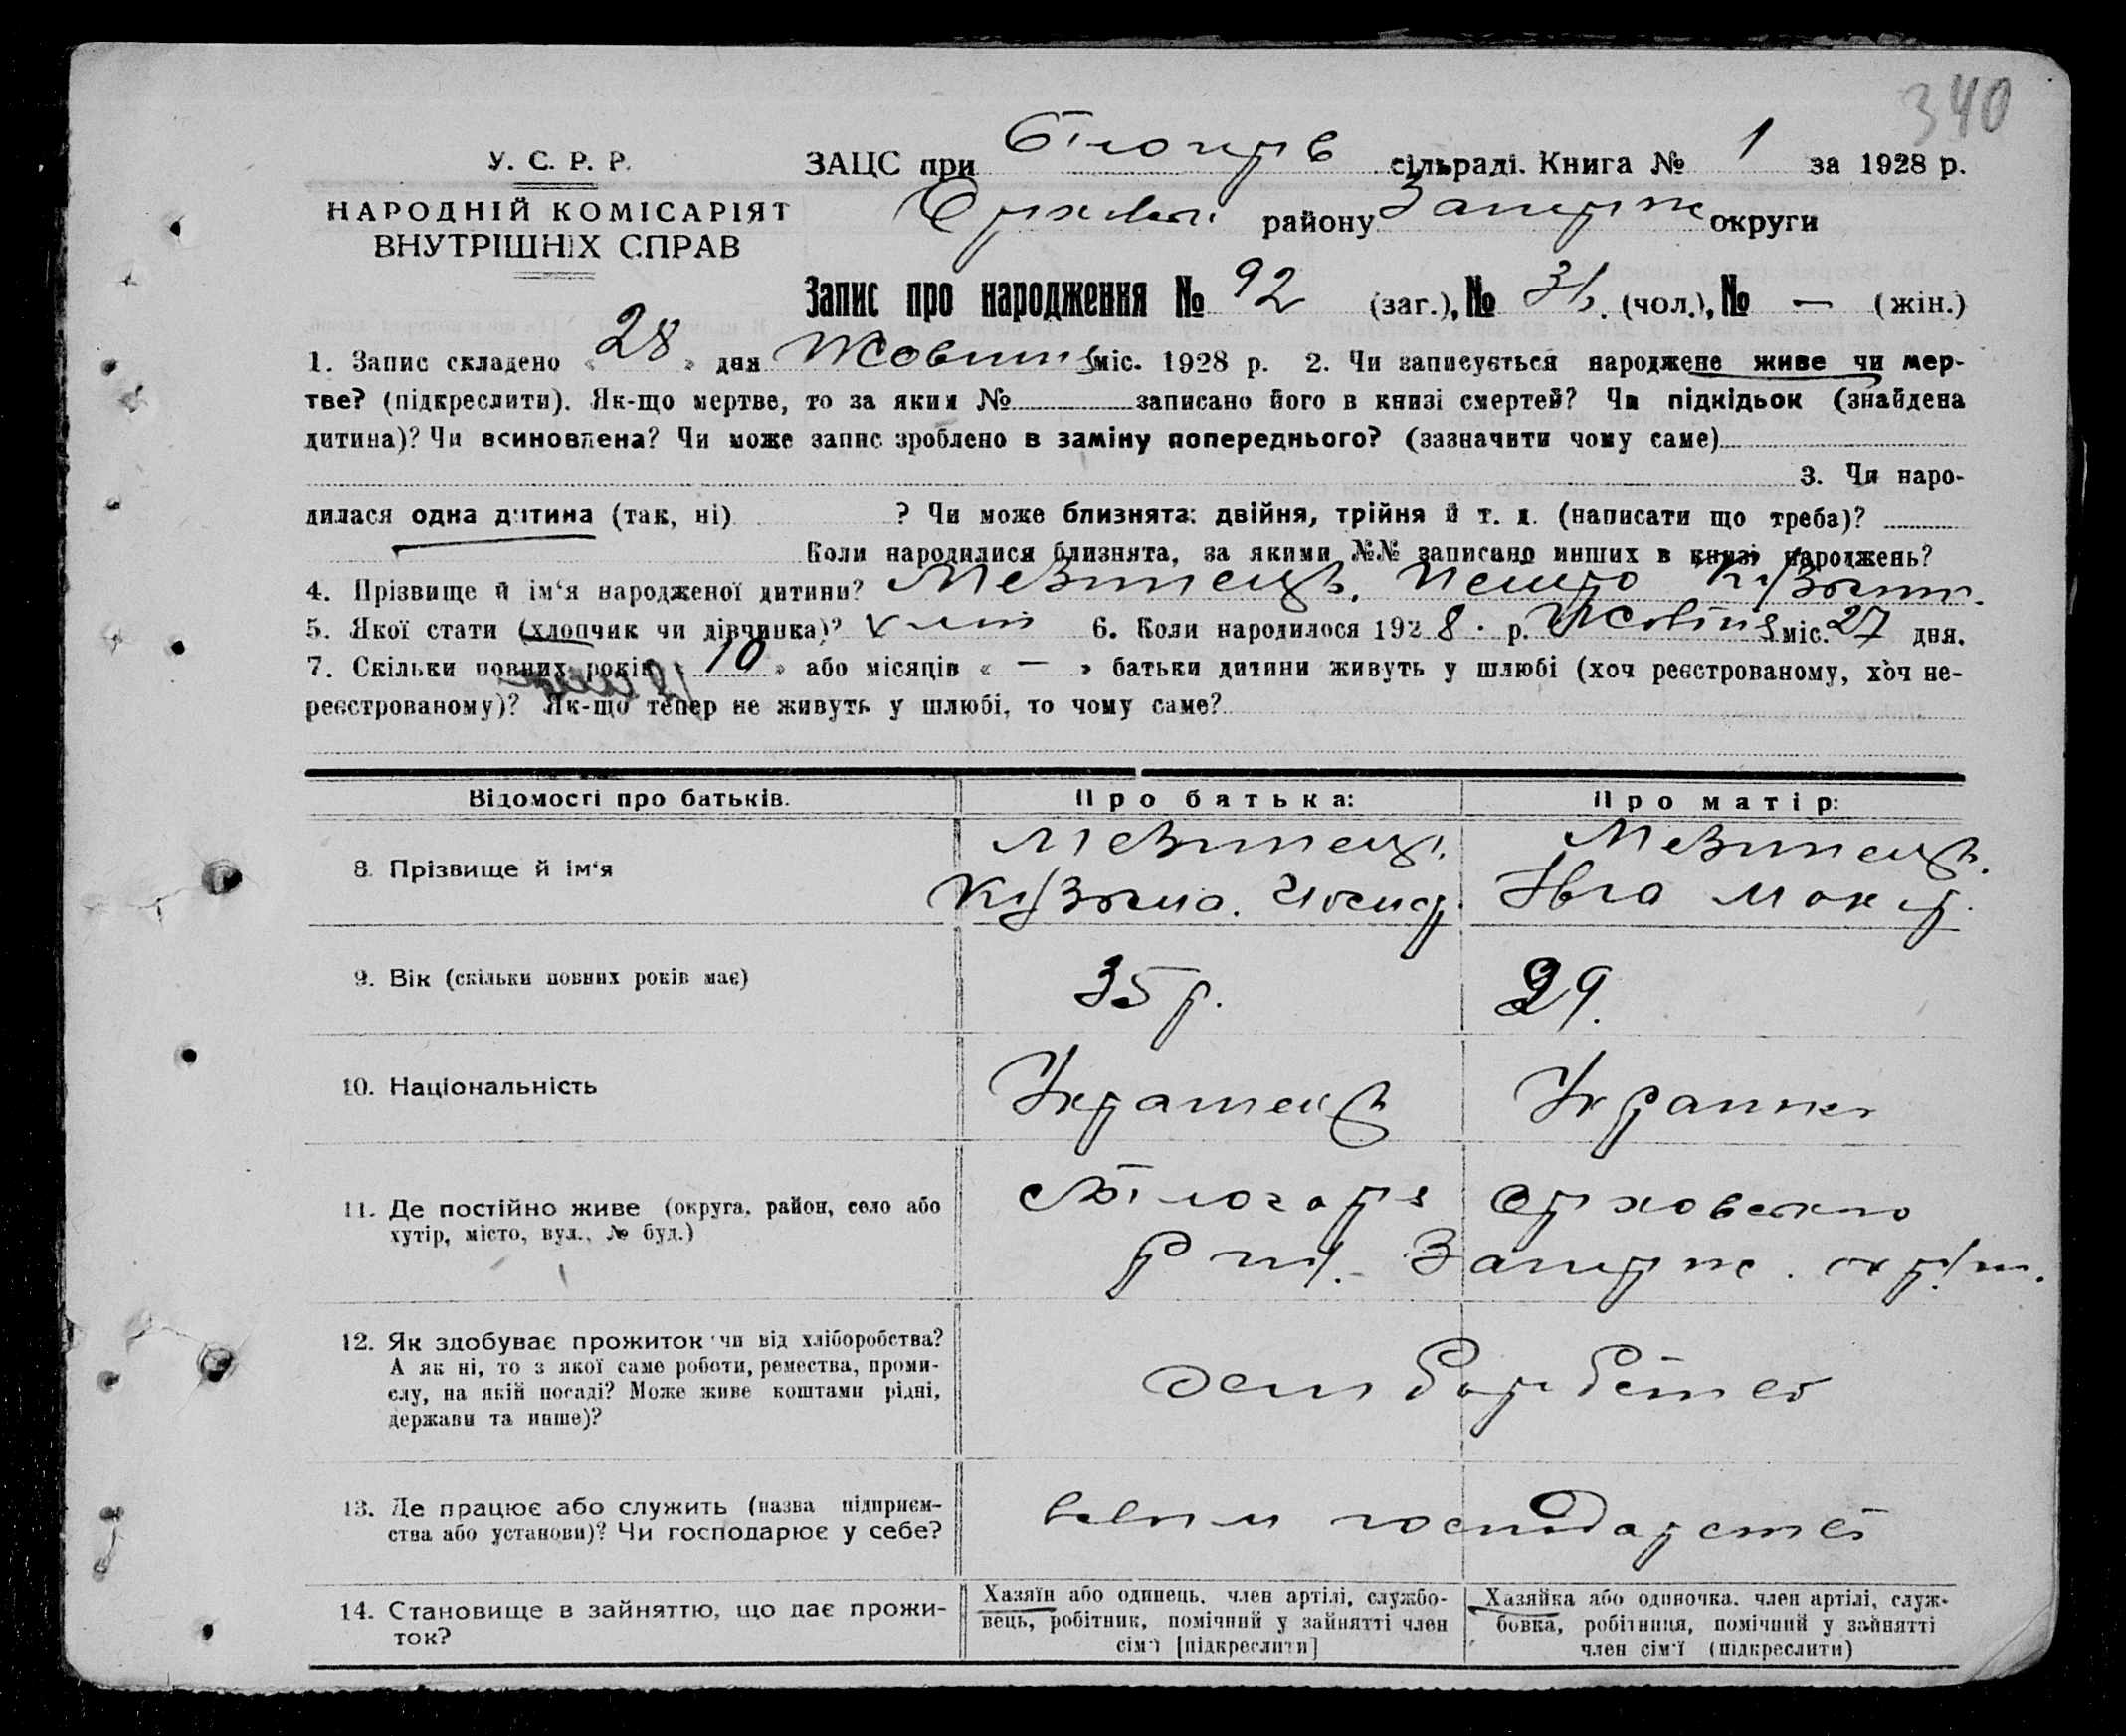 340
У. С. Р. Р.
НАРОДНІЙ КОМІСАРІЯТ
ВНУТРІШНІХ СПРАВ
ЗАЦС при сільраді. Книга № 1 за 1928 р.
району Запоріж округи
Запис про народження № 92 (заг.), № (чол.), № — (жін.)
1. Запис складено « 28 » дня Жовтня міс. 1928 р. 2. Чи записується народжене живе чи мер-
тве? (підкреслити). Як-що мертве, то за яким № записано його в книзі смертей? Чи підкідьок (знайдена
дитина)? Чи всиновлена? Чи може запис зроблено в заміну попереднього? (зазначити чому саме)
3. Чи наро-
дилася одна дитина (так, ні) ? Чи може близнята: двійня, трійня й т. д. (написати що треба)?
Коли народилися близнята, за якими №№ записано инших в книзі народжень?
4. Прізвище й ім‘я народженої дитини? Мезинець. Петро Кузьмич.
5. Якої стати (хлопчик чи дівчинка)? хлоп 6. Коли народилося 192 8. р. Жовтня міс. 27 дня.
7. Скільки повних років « 10 » або місяців « — » батьки дитини живуть у шлюбі (хоч реєстрованому, хоч не-
реєстрованому)? Як-що тепер не живуть у шлюбі, то чому саме?
Відомості про батьків. Про батька: Про матір:
8. Прізвище й ім‘я
Мезинець. Мезинець.
Кузьма. Івга Макар.
9. Вік (скільки повних років має) 35 р. 29.
10. Національність Українець Українка
11. Де постійно живе (округа, район, село або
хутір, місто, вул., № буд.)
Оріховського
Запоріж. окр.
12. Як здобуває прожиток чи від хліборобства?
А як ні, то з якої саме роботи, ремества, проми-
слу, на якій посаді? Може живе коштами рідні,
держави та инше)?
13. Де працює або служить (назва підприєм-
ства або установи)? Чи господарює у себе?
господарстві
14. Становище в зайняттю, що дає прожи-
ток?
Хазяїн або одинець, член артілі, службо-
вець, робітник, помічний у зайнятті член
сім‘ї [підкреслити]
Хазяйка або одиночка, член артілі, служ-
бовка, робітниця, помічний у зайнятті
член сім‘ї (підкреслити)